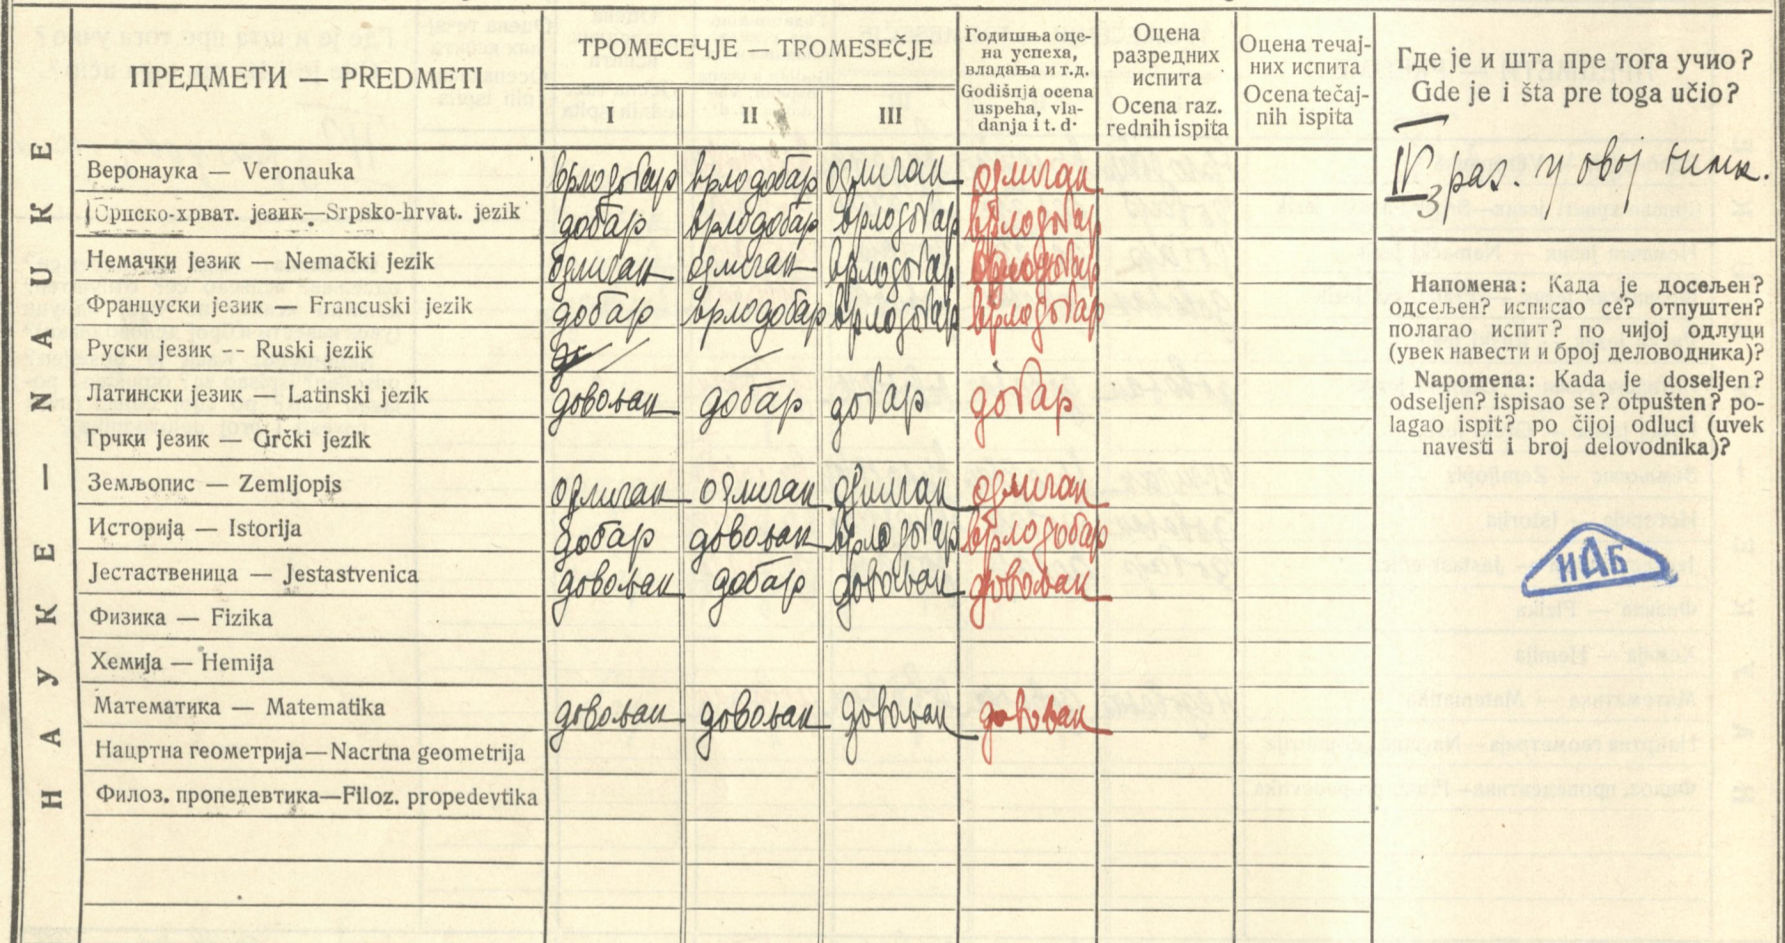 НАУКЕ — NAUKE
ПРЕДМЕТИ — PREDMETI
ТРОМЕСЕЧЈЕ — TROMESEČJE
I II III
Годишња оце-
на успеха,
владања и т.д.
Godišnja ocena
uspeha, vla-
danja i t. d.
Оцена
разредних
испита
Ocena raz.
rednih ispita
Оцена течај-
них испита
Ocena tečaj-
nih ispita
Где је и шта пре тога учио?
Gde je i šta pre toga učio?
IV3 раз. у овој гимн.
Веронаука — Veronauka врлодобар врлодобар одличан одличан
Српско-хрват. језик—Srpsko-hrvat. jezik добар врлодобар врлодобар врлодобар
Немачки језик — Nemački jezik одличан одличан врлодобар врлодобар
Француски језик — Francuski jezik добар врлодобар врлодобар врлодобар
Руски језик -- Ruski jezik
Латински језик — Latinski jezik довољан добар добар добар
Грчки језик — Grčki jezik
Земљопис — Zemljopis одличан одличан одличан одличан
Историја — Istorija добар довољан врлодобар врлодобар
Јестаственица — Jestastvenica довољан добар довољан довољан
Физика — Fizika
Хемија — Hemija
Математика — Matematika довољан довољан довољан довољан
Нацртна геометрија—Nacrtna geometrija
Филоз. пропедевтика—Filoz. propedevtika
Напомена: Када је досељен?
одсељен? исписао се? отпуштен?
полагао испит? по чијој одлуци
(увек навести и број деловодника)?
Napomena: Kada je doseljen?
odseljen? ispisao se? otpušten? po-
lagao ispit? po čijoj odluci (uvek
navesti i broj delovodnika)?
ИАБ